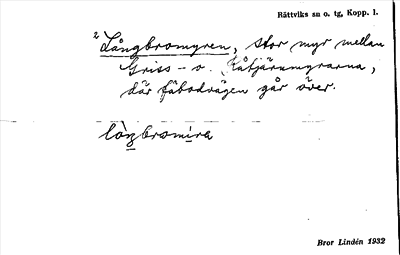 Rättviks sn o. tg, Kopp. l.
2 Långbromyren, stor myr mellan
Griss- o. Råtjärnmyrarna,
där fäbodvägen går över.
Bror Lindén 1932